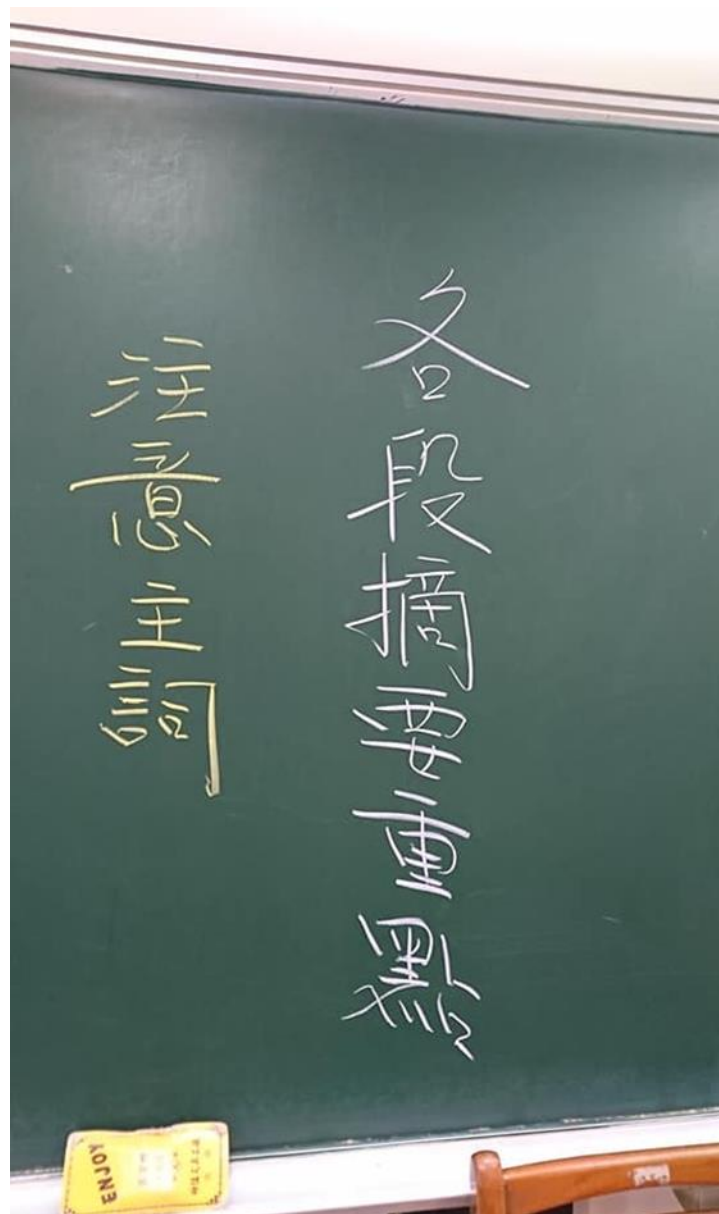 各段摘要重點
注意主詞
ENJOY